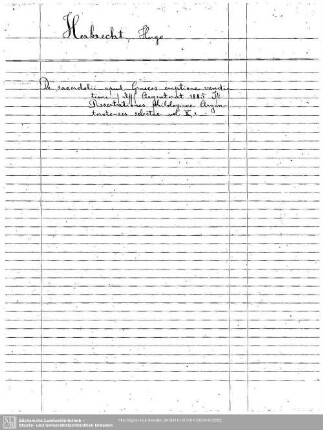 Herbrecht, Hugo
De sacerdotii apud Graecos emptione vendi-
tione. Diss. Argentorat 1885 It.
Dissertationes Philologicae Argen-
toratenses selectae vol. X,
Sächsische Landesbibliothek -
Staats- und Universitätsbibliothek Dresden